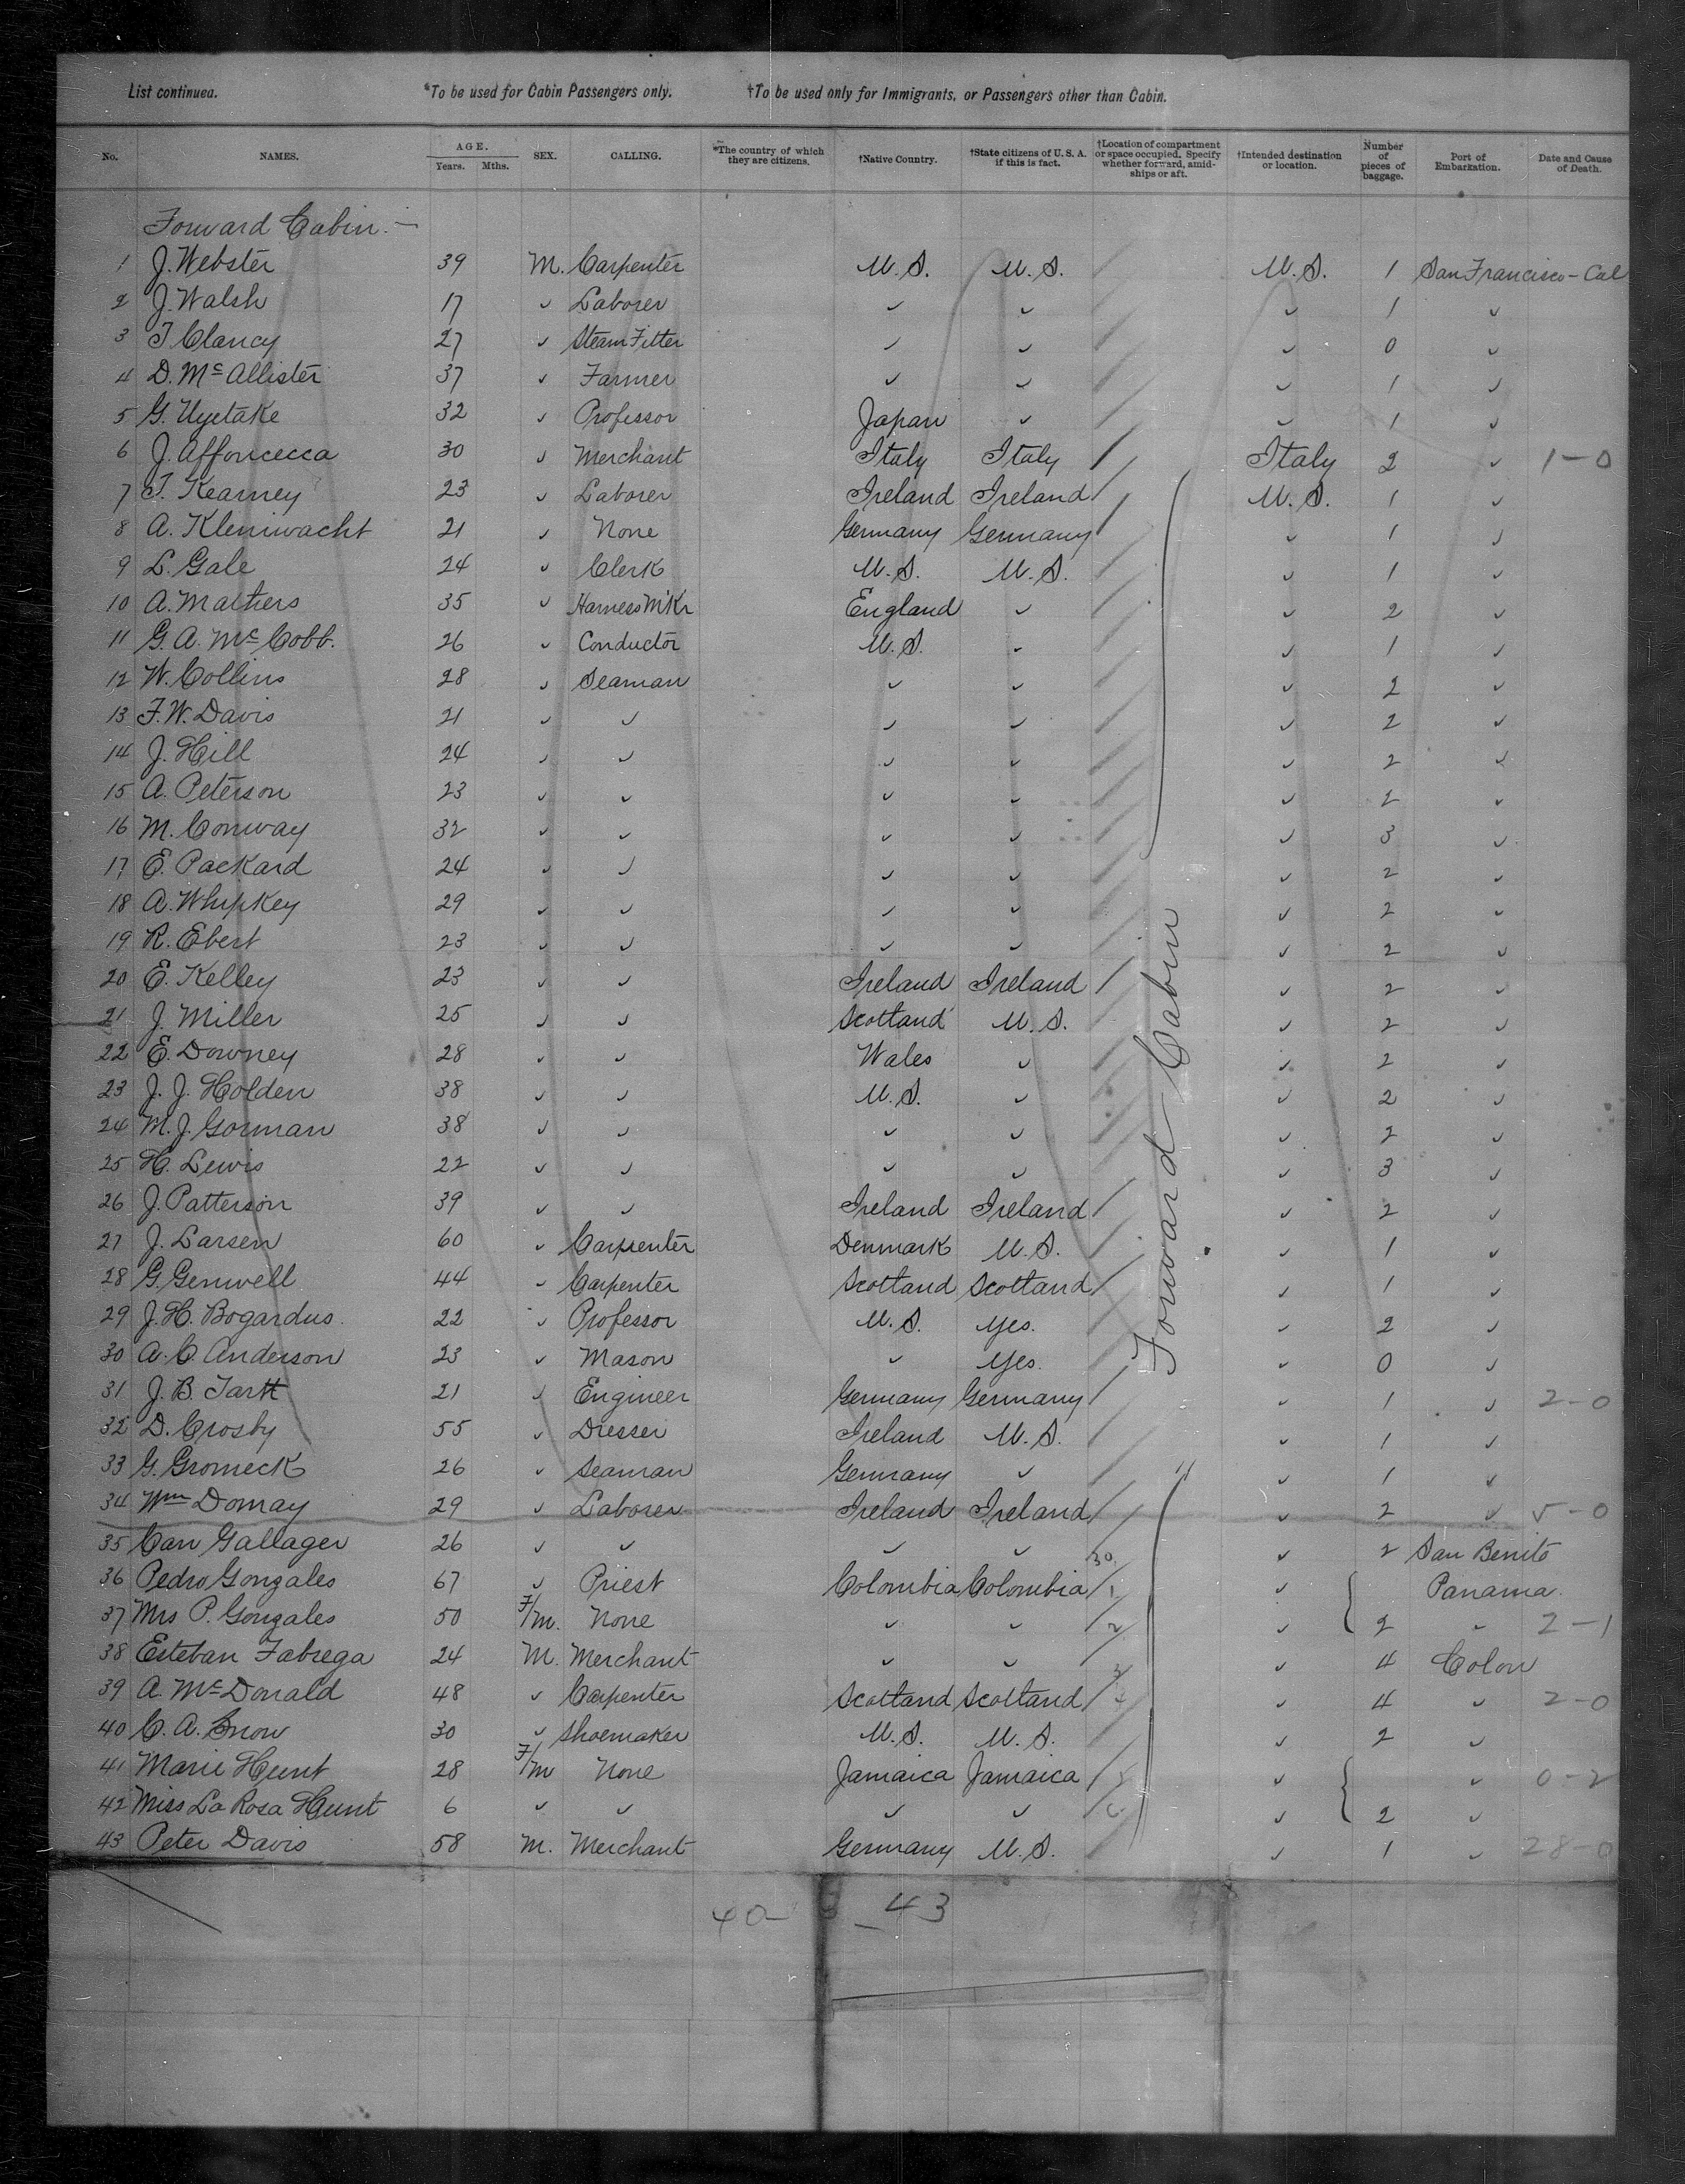 List continued. *To be used for Cabin Passengers only. †To be used only for Immigrants, or Passengers other than Cabin.
No. NAMES. AGE. Years. Mths. SEX. CALLING. *The country of which they are citizens. †Native Country. †State citizens of U. S. A. if this is fact. †Location of compartment or space occupied. Specify whether forward, amidships or aft. †Intended destination or location. Number of pieces of baggage. Port of Embarkation. Date and Cause of Death.
Forward Cabin. —
1 J. Webster 39 M. Carpenter U.S. U.S. / U.S. 1 San Francisco - Cal
2 J. Walsh 17 ✓ Laborer ✓ ✓ / ✓ 1 ✓
3 T Clancy 27 ✓ Steam Fitter ✓ ✓ / ✓ 0 ✓
4 D. McAllister 37 ✓ Farmer ✓ ✓ / ✓ 1 ✓
5 G. Uyetake 32 ✓ Professor Japan ✓ / ✓ 1 ✓
6 J. Affoncecca 30 ✓ Merchant Italy Italy / Italy 2 ✓ 1-0
7 T. Kearney 23 ✓ Laborer Ireland Ireland / U.S. 1 ✓
8 A. Kleniwacht 21 ✓ None Germany Germany / ✓ 1 ✓
9 L. Gale 24 ✓ Clerk U.S. U.S. / ✓ 1 ✓
10 A. Mathers 35 ✓ Harness M'Kr England ✓ / ✓ 2 ✓
11 G. A. McCobb. 26 ✓ Conductor U.S. ✓ / ✓ 1 ✓
12 W. Collins 28 ✓ Seaman ✓ ✓ / ✓ 2 ✓
13 F. W. Davis 21 ✓ ✓ ✓ ✓ / ✓ 2 ✓
14 J. Hill 24 ✓ ✓ ✓ ✓ / ✓ 2 ✓
15 A. Peterson 23 ✓ ✓ ✓ ✓ / ✓ 2 ✓
16 M. Conway 32 ✓ ✓ ✓ ✓ / ✓ 3 ✓
17 E. Packard 24 ✓ ✓ ✓ ✓ / ✓ 2 ✓
18 A. Whipkey 29 ✓ ✓ ✓ ✓ / ✓ 2 ✓
19 R. Ebert 23 ✓ ✓ ✓ ✓ / ✓ 2 ✓
20 E. Kelley 23 ✓ ✓ Ireland Ireland / ✓ 2 ✓
21 J. Miller 25 ✓ ✓ Scotland U.S. / ✓ 2 ✓
22 E. Downey 28 ✓ ✓ Wales ✓ / ✓ 2 ✓
23 J. J. Holden 38 ✓ ✓ U.S. ✓ / ✓ 2 ✓
24 M. J. Gorman 38 ✓ ✓ ✓ ✓ / ✓ 2 ✓
25 H. Lewis 22 ✓ ✓ ✓ ✓ / ✓ 3 ✓
26 J. Patterson 39 ✓ ✓ Ireland Ireland / ✓ 2 ✓
27 J. Larsen 60 ✓ Carpenter Denmark U.S. / ✓ 1 ✓
28 G. Genwell 44 ✓ Carpenter Scotland Scotland / ✓ 1 ✓
29 J. H. Bogardus. 22 ✓ Professor U.S. Yes. / ✓ 2 ✓
30 A. C. Anderson 23 ✓ Mason ✓ Yes. / ✓ 0 ✓
31 J. B. Tartt 21 ✓ Engineer Germany Germany / ✓ 1 ✓ 2-0
32 D. Crosby 55 ✓ Dresser Ireland U.S. / ✓ 1 ✓
33 G. Gromeck 26 ✓ Seaman Germany ✓ / ✓ 1 ✓
34 Wm Domay 29 ✓ Laborer Ireland Ireland / ✓ 2 ✓ 5-0
35 Can Gallager 26 ✓ ✓ ✓ ✓ 30 ✓ 2 San Benito
36 Pedro Gonzales 67 ✓ Priest Colombia Colombia / 1 ✓ Panama.
37 Mrs P. Gonzales 50 F/m. None ✓ ✓ 2 ✓ 2 ✓ 2-1
38 Esteban Fabrega 24 M. Merchant ✓ ✓ 3 ✓ 4 Colon
39 A. McDonald 48 ✓ Carpenter Scotland Scotland / 4 ✓ 4 ✓ 2-0
40 C. A. Snow 30 ✓ Shoemaker U.S. U.S. ✓ 2 ✓
41 Marie Hunt 28 F/m None Jamaica Jamaica / 5 ✓ ✓ 0-2
42 Miss La Rosa Hunt 6 ✓ ✓ ✓ ✓ / 6 ✓ 2 ✓
43 Peter Davis 58 M. Merchant Germany U.S. / ✓ 1 ✓ 28-0
Forward Cabin
40- - 43